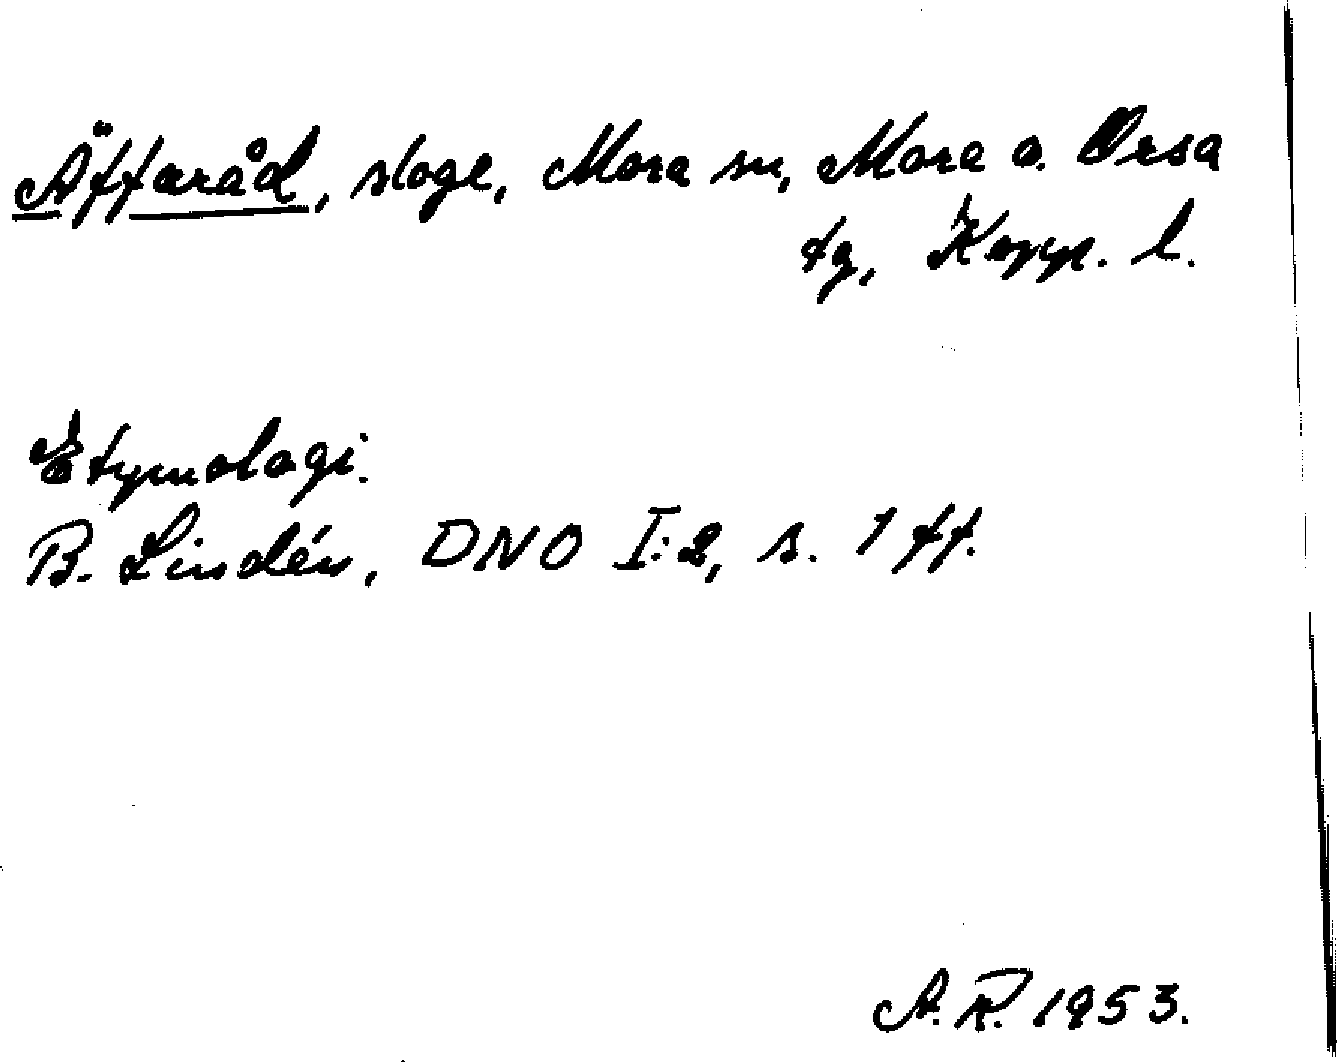 Äffaråd, skage, Mora sn, Mora o. Orsa
tg, Kopp. l.
Etymologi.
B. Lindén, DNO I:2, s. 1 ff.
A. R. 1953.